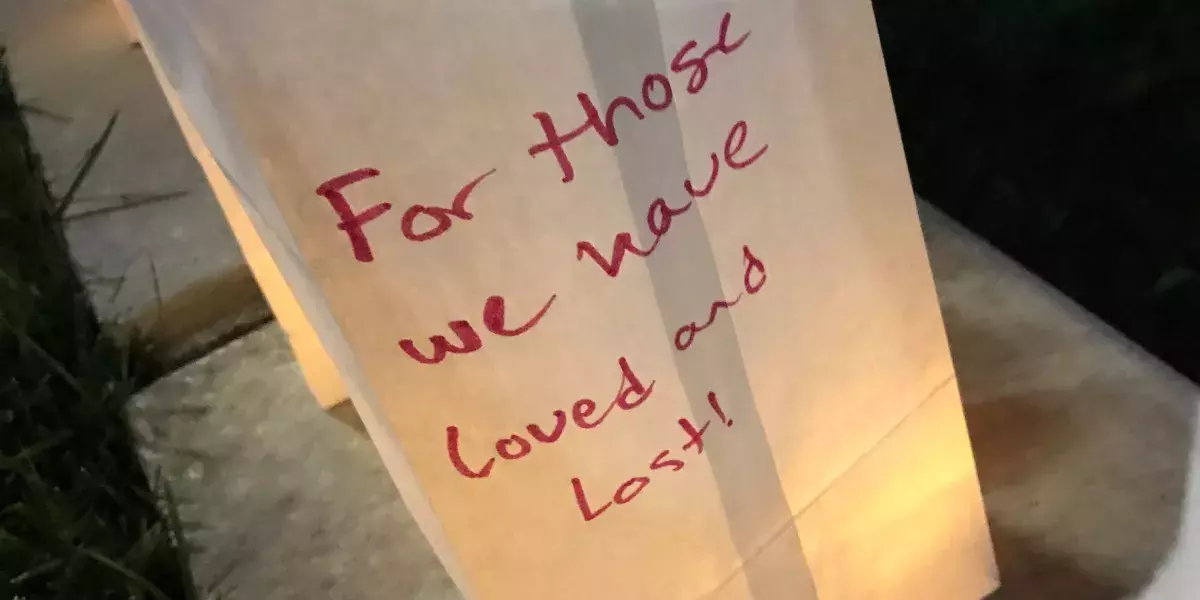 For those
we have
Loved and
Lost!